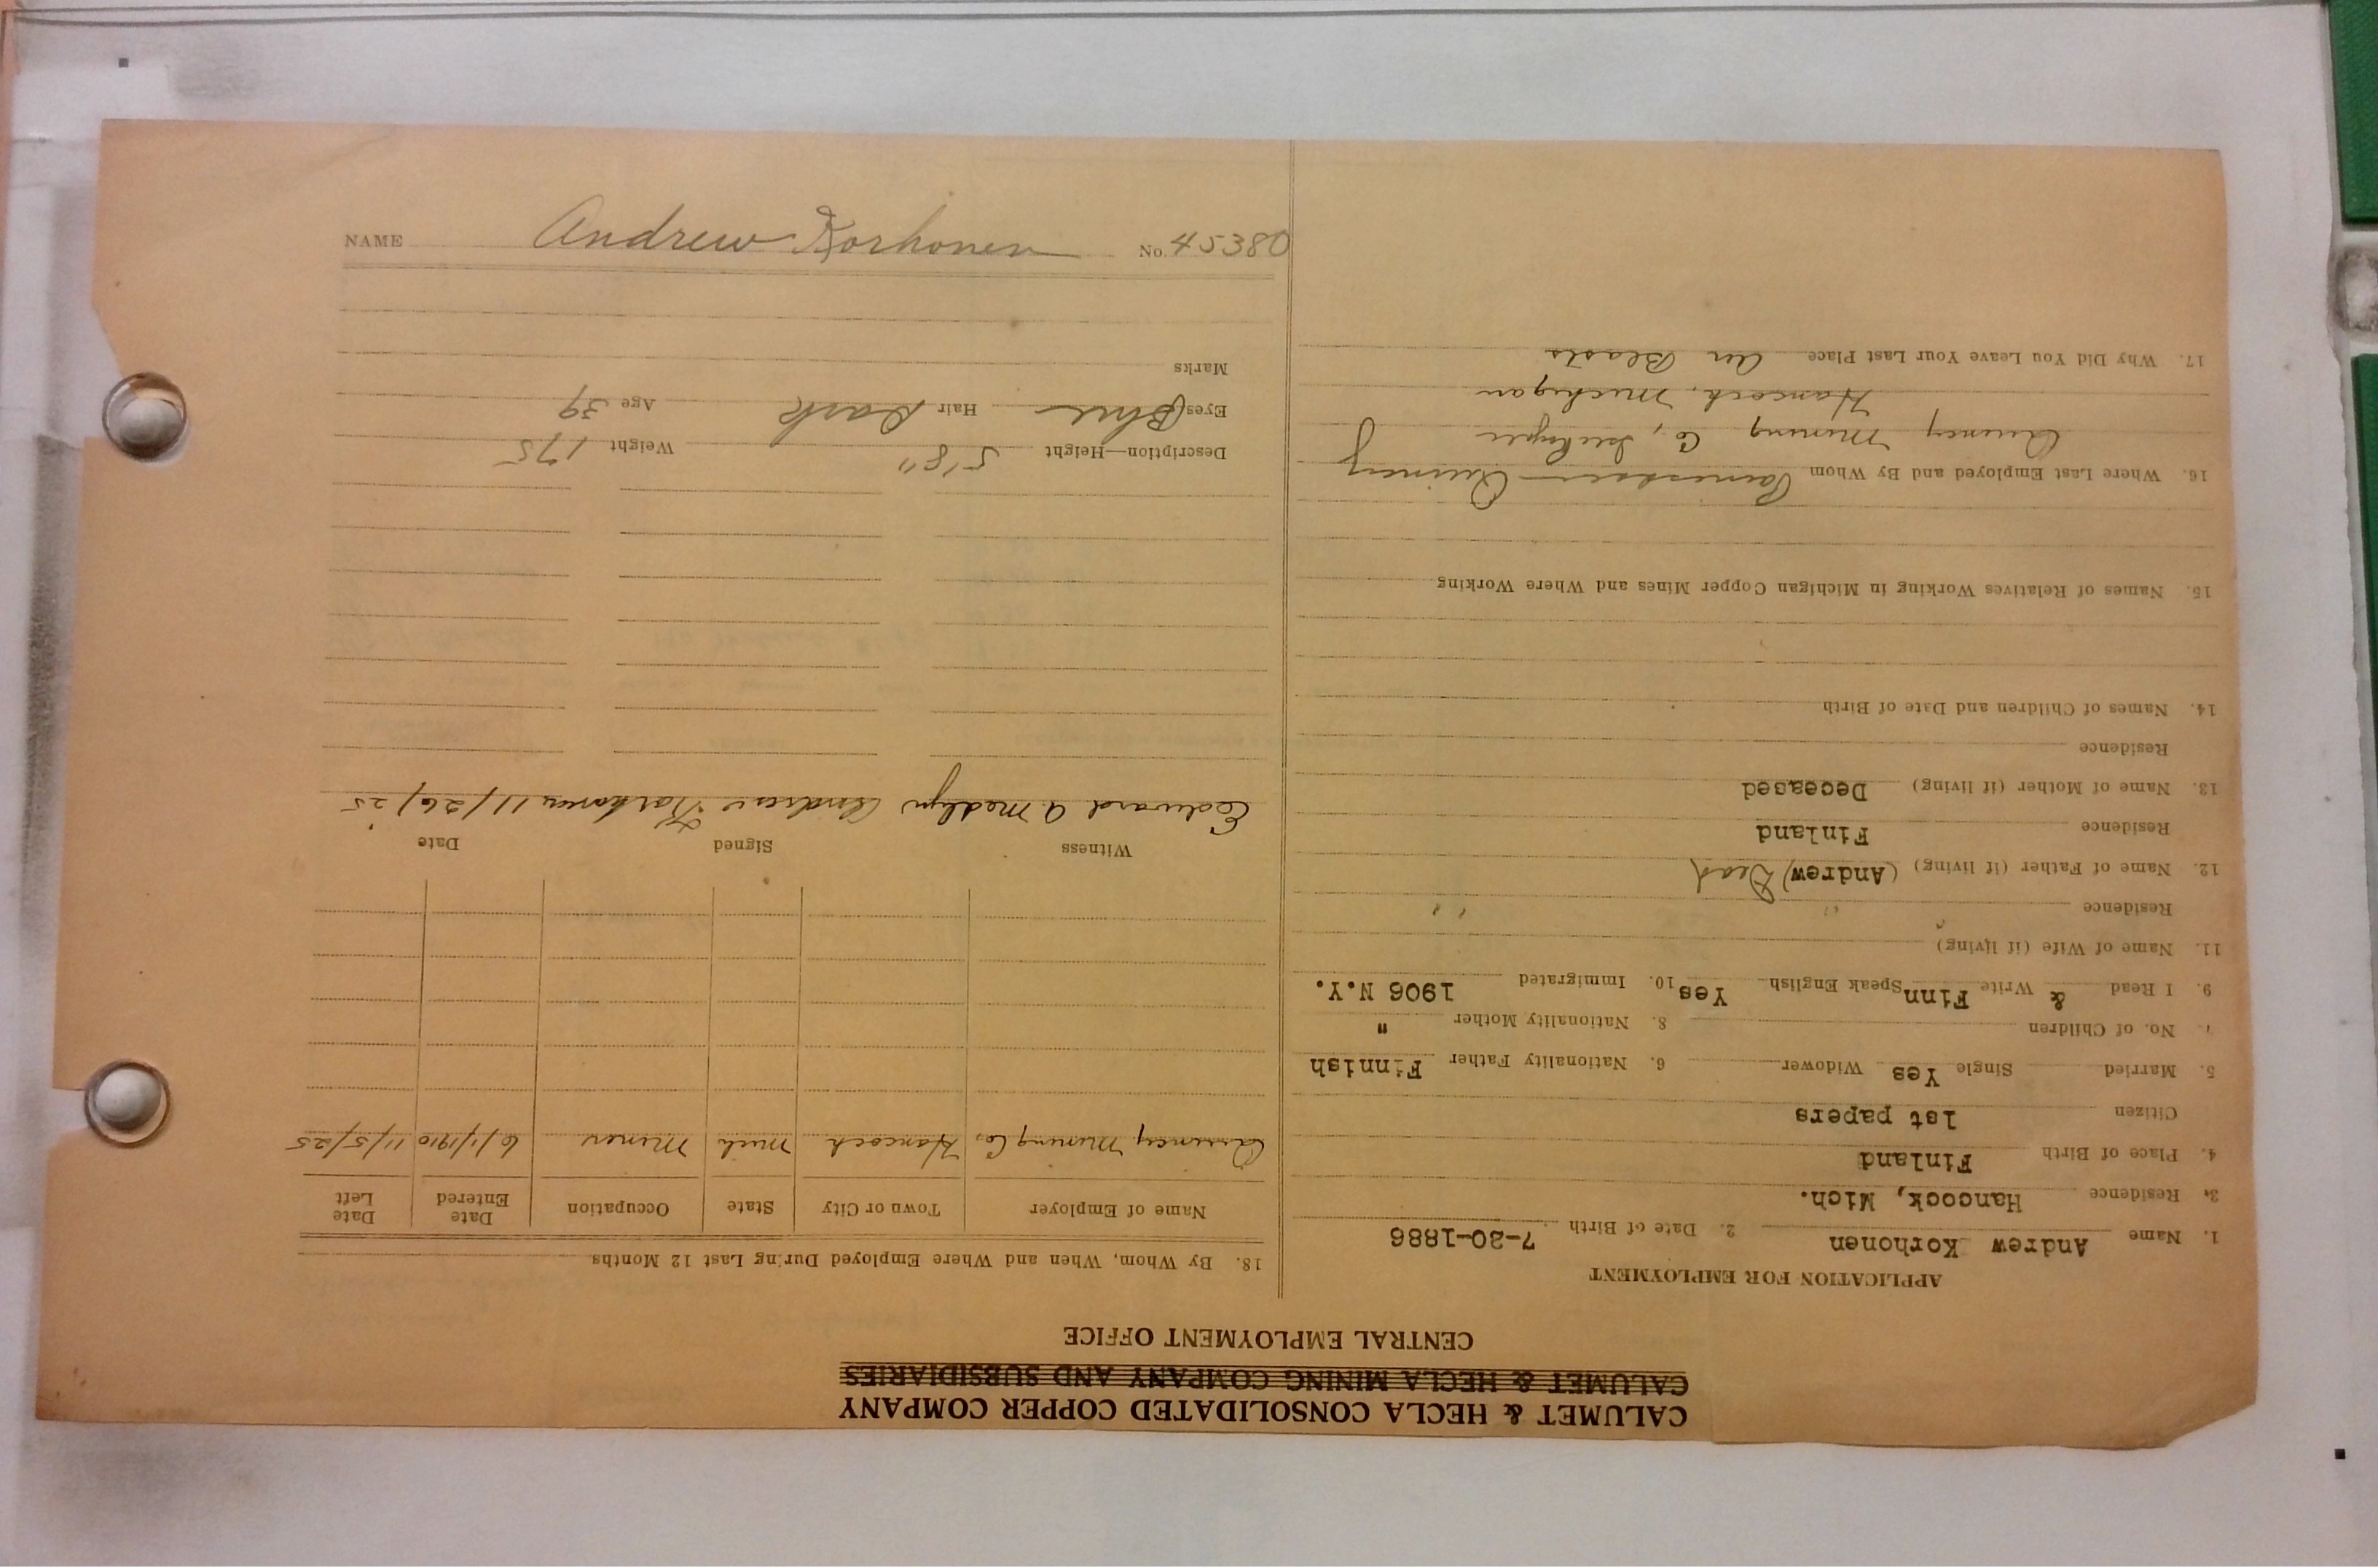 CALUMET & HECLA CONSOLIDATED COPPER COMPANY
CALUMET & HECLA MINING COMPANY AND SUBSIDIARIES
CENTRAL EMPLOYMENT OFFICE
APPLICATION FOR EMPLOYMENT
1. Name Andrew Korhonen 2. Date of Birth 7-30-1886
3. Residence Hancock, Mich.
4. Place of Birth Finland
Citizen 1st papers
5. Married Single Yes Widower 6. Nationality Father Finnish
7. No. of Children 8. Nationality Mother "
9. I Read & Write Finn Speak English Yes 10. Immigrated 1906 N.Y.
11. Name of Wife (if living)
Residence
12. Name of Father (if living) (Andrew) Dead
Residence Finland
13. Name of Mother (if living) Deceased
Residence
14. Names of Children and Date of Birth
15. Names of Relatives Working in Michigan Copper Mines and Where Working
16. Where Last Employed and By Whom Quincy
Quincy Mining Co,
Hancock, Michigan
17. Why Did You Leave Your Last Place Air Blasts
18. By Whom, When and Where Employed During Last 12 Months
Name of Employer Town or City State Occupation Date Entered Date Left
Quincy Mining Co, Hancock Mich Miner 6/1/1910 11/5/25
Witness Signed Date
Edward A Medlyn Andrew Korhonen 11/26/25
Description—Height 5'8" Weight 175
Eyes Blue Hair Dark Age 39
Marks
NAME Andrew Korhonen No. 45380